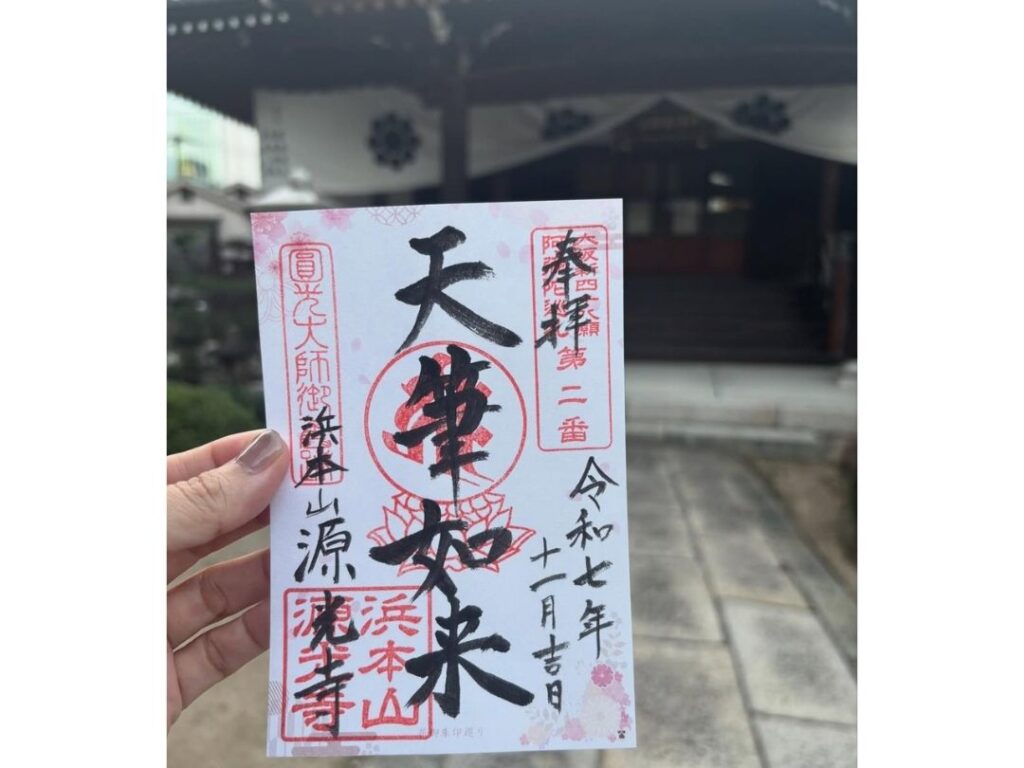 奉拝
大阪新四十八願
阿弥陀巡礼
第二番
令和七年
十一月吉日
天筆如来
圓光大師御
浜本山
源光寺
浜本山
源光寺
御朱印巡り